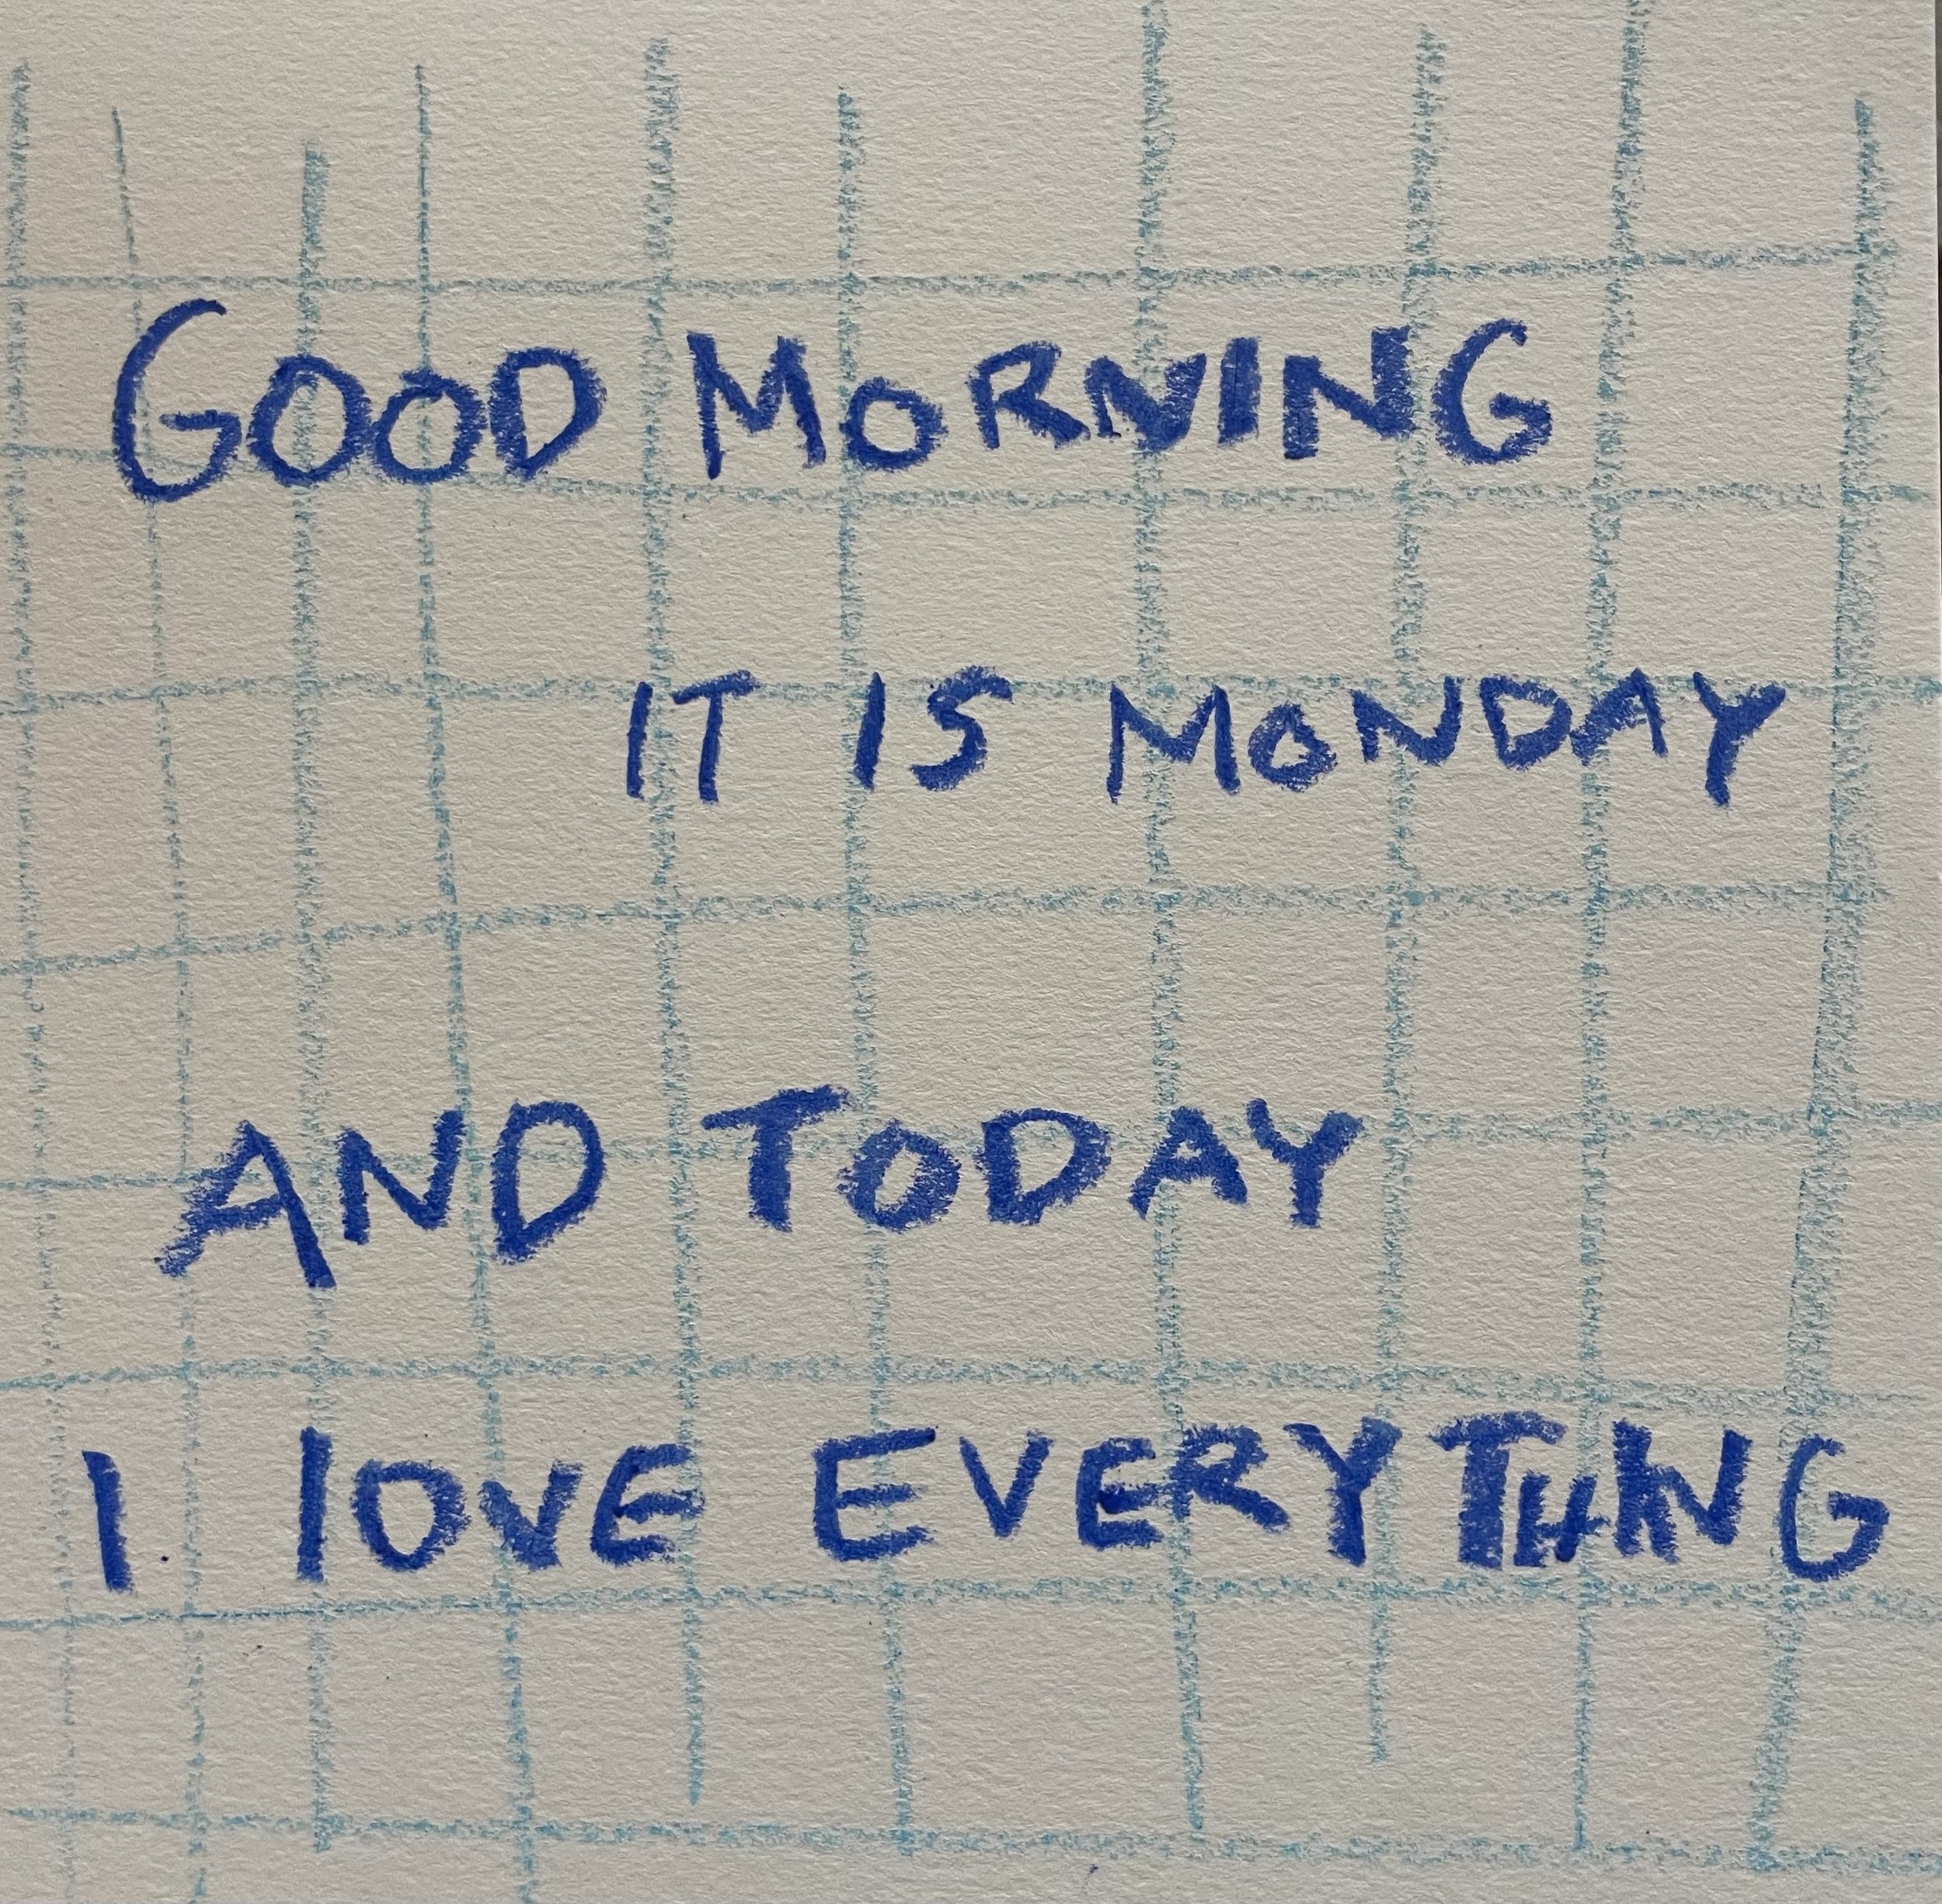 GOOD MORNING
IT IS MONDAY
AND TODAY
I lOVE EVERYTHING